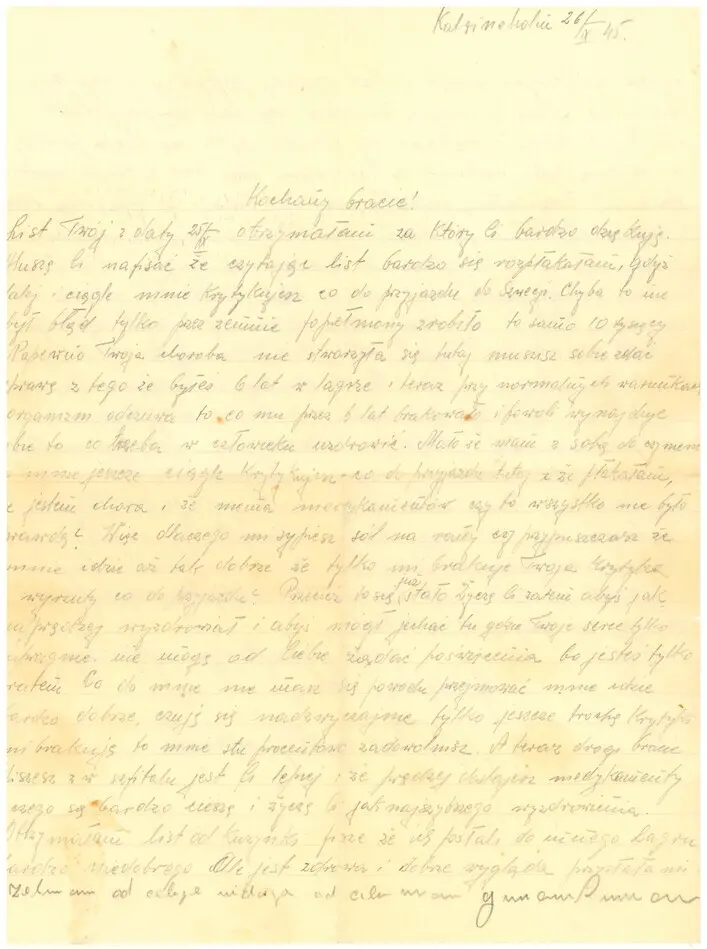 26/IX 45.
Kochany bracie!
List Twój z daty 25/IX otrzymałam za który Ci bardzo dziękuję.
Muszę Ci napisać że czytając list bardzo się rozpłakałam, gdyż
i ciągle mnie krytykujesz co do przyjazdu do Szwecji. Chyba to nie
był błąd tylko przez zemnie popełniony zrobiło to samo 10 tysięcy
Twoja choroba nie stworzyła się tutaj musisz sobie zdać
sprawę z tego że byłeś 6 lat w lagrze i teraz przy normalnych warunkach
organizm odczuwa to co mu przez 6 lat brakowało i powoli wynajduje
to co trzeba w człowieku uzdrowić. Mało że mam z sobą do
mnie jeszcze ciągle krytykujesz co do przyjazdu tutaj i że płakałam,
że jestem chora i że niema medykamentów czy to wszystko nie było
prawdą? Więc dlaczego mi sypiesz sól na rany czy przypuszczasz że
mnie idzie aż tak dobrze że tylko mi brakuje Twoja krytyka
wyrzuty co do przyjazdu? Przecież to się już stało życzę Ci zatem abyś jak
na prędzej wyzdrowiał i abyś mógł jechać tu gdzie Twoje serce tylko
zapragnie. nie mogę od Ciebie żądać poświęcenia bo jesteś tylko
bratem Co do mnie nie masz się powodu przejmować mnie idzie
bardzo dobrze, czuję się nadzwyczajnie tylko jeszcze trochę krytyki
mi brakuje to mnie stu procentowo zadowolnisz. A teraz drogi bracie
piszesz z w szpitalu jest Ci lepiej i że prędzej dostajesz medykamenty
czego się bardzo cieszę i życzę Ci jaknajszybszego wyzdrowienia.
Otrzymałam list od kuzynki pisze że ich posłali do innego Lagru
bardzo niedobrego Ale jest zdrowa i dobrze wygląda przysłała mi
od od